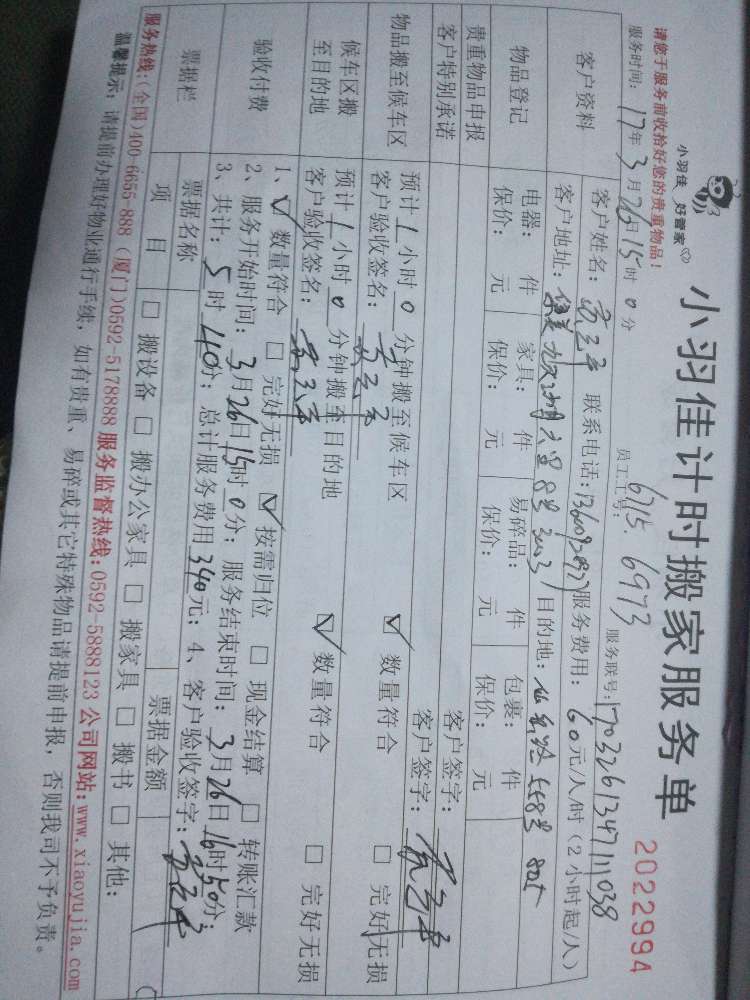 小羽佳 好管家
小羽佳计时搬家服务单
2022994
请您于服务前收拾好您的贵重物品!
员工工号: 6715. 6973
服务联号: 170326134711038
服务时间: 17年3月26日15时0分
客户资料
客户姓名: 联系电话: 服务费用: 60元/人/时(2小时起/人)
客户地址: 目的地:
物品登记
电器: 件 家具: 件 易碎品: 件 包裹: 件
保价: 元 保价: 元 保价: 元 保价: 元
贵重物品申报
客户签字:
客户特别承诺
客户签字:
物品搬至候车区
预计1小时0分钟搬至候车区 ☑数量符合 □完好无损
客户验收签名:
候车区搬至目的地
预计1小时0分钟搬至目的地 ☑数量符合 □完好无损
客户验收签名:
验收付费
1、☑数量符合 □完好无损 ☑按需归位 □现金结算 □转账汇款
2、服务开始时间: 3月26日15时0分; 服务结束时间: 3月26日16时50分;
3、共计: 5时40分; 总计服务费用340元; 4、客户验收签字:
票据栏
票据名称 票据金额
项目 □搬设备 □搬办公家具 □搬家具 □搬书 □其他:
服务热线:(全国)400-6655-888 (厦门)0592-5178888 服务监督热线:0592-5888123 公司网站:www.xiaoyujia.com
温馨提示: 请提前办理好物业通行手续, 如有贵重、易碎或其它特殊物品请提前申报, 否则我司不予负责。